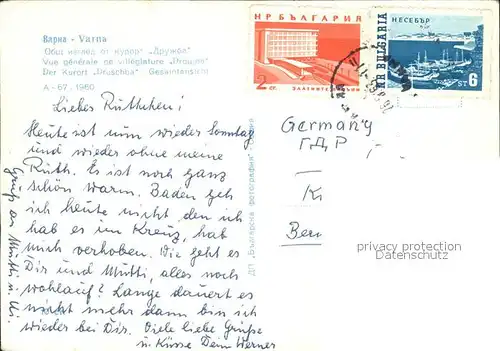 Варна - Varna
Общ изглед от курорт „Дружба"
Vue générale de villégiature „Droujba"
Der Kurort „Druschba" Gesamtansicht
A - 67, 1960
НР БЪЛГАРИЯ
2 СТ.
НЕСЕБЪР
NR BULGARIA
ST 6
Liebes Ruthchen!
Heute ist nun wieder Sonntag
und wieder ohne meine
Ruth. Es ist noch ganz
schön warm. Baden geh
ich heute nicht den ich
hab es im Kreuz, hab
mich verhoben. Wie geht es
Dir und Mutti, alles noch
wohlauf? Lange dauert es
nicht mehr dann bin ich
wieder bei Dir. Viele liebe Grüße
u. Küsse Dein Werner
Gruß an Mutti u.
ДП „Българска фотография"
Germany
ГДР
K
Ber
privacy protection
Datenschutz